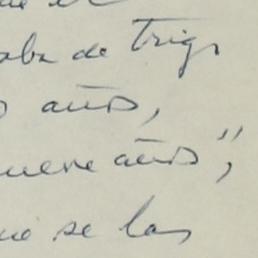 aba de trigo
años,
nueve años",
que se las